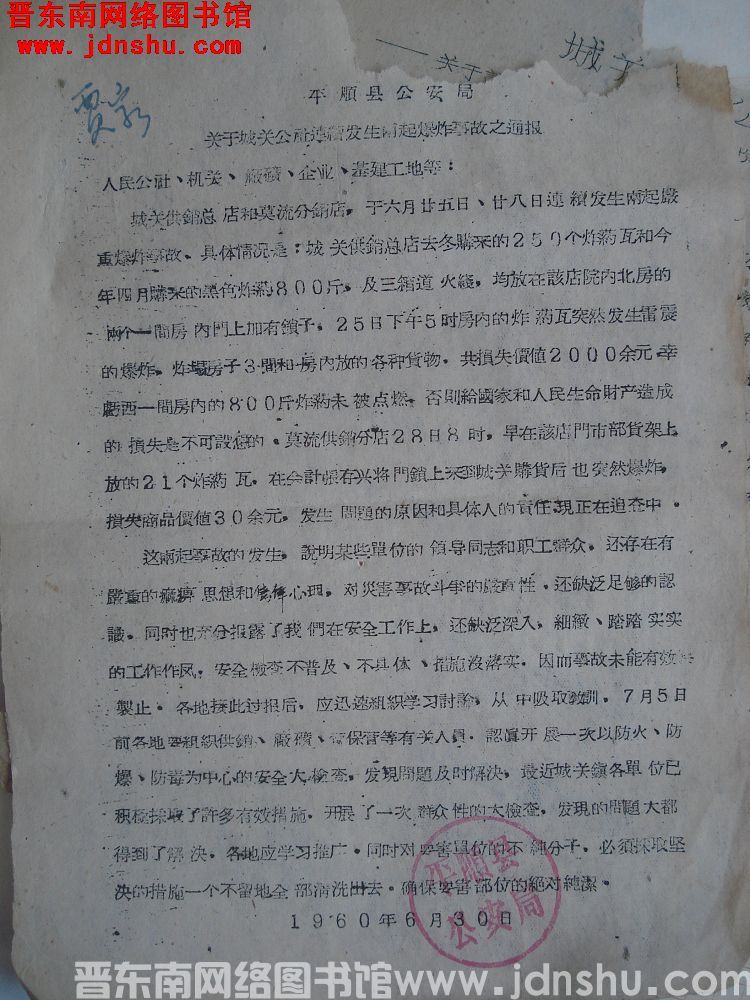 晋东南网络图书馆
www.jdnshu.com
城关
关于
贾家
平順县公安局
关于城关公社連續发生兩起爆炸事故之通报
人民公社、机关、廠礦、企业、基建工地等：
城关供銷总店和莫流分銷店，于六月廿五日、廿八日連續发生兩起嚴
重爆炸事故。具体情况是：城关供銷总店去冬購来的250个炸药瓦和今
年四月購来的黑色炸药800斤，及三箱道火綫，均放在該店院內北房的
兩个一間房內門上加有鎖子，25日下午5时房内的炸药瓦突然发生雷震
的爆炸，炸塌房子3間和房內放的各种貨物，共損失價値2000余元，幸
虧西一間房內的800斤炸药未被点燃，否則給國家和人民生命財产造成
的損失是不可設想的。莫流供銷分店28日8时，早在該店門市部貨架上
放的21个炸药瓦，在会計張有兴将門鎖上来到城关購貨后也突然爆炸，
損失商品價値30余元，发生問題的原因和具体人的責任現正在追查中。
这兩起事故的发生，說明某些單位的領导同志和职工群众，还存在有
嚴重的痲痹思想和侥倖心理，对災害事故斗爭的嚴重性，还缺乏足够的認
識。同时也充分报露了我們在安全工作上，还缺乏深入，細緻、踏踏实实
的工作作风，安全檢查不普及、不具体、措施沒落实，因而事故未能有效
製止。各地接此过报后，应迅速組織学习討論，从中吸取敎訓，7月5日
前各地要組織供銷、廠礦、保管等有关人員，認眞开展一次以防火、防
爆、防毒为中心的安全大檢查，发現問題及时解決，最近城关鎮各單位已
积極採取了許多有效措施，开展了一次群众性的大檢查，发現的問題大都
得到了解決，各地应学习推广。同时对要害單位的不純分子，必須採取坚
決的措施一个不留地全部清洗出去。确保要害部位的絶对純潔。
1960年6月30日
平順县
公安局
晋东南网络图书馆 www.jdnshu.com